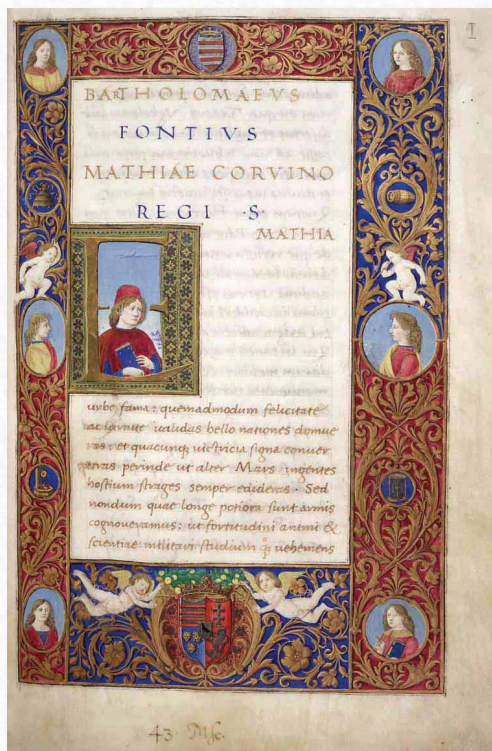 I
BARTHOLOMAEVS
FONTIVS
MATHIAE CORVINO
REGI · S ·
MATHIA
urbe fama: quemadmodum felicitate
ac uirtute ualidas bello nationes domue
ras: et quacunq; uictricia signa conuer
teras perinde ut alter Mars ingentes
hostium strages semper edideras. Sed
nondum quae longe potiora sunt armis
cognoueramus: ut fortitudini animi &
scientiae militari studium q; uehemens
43